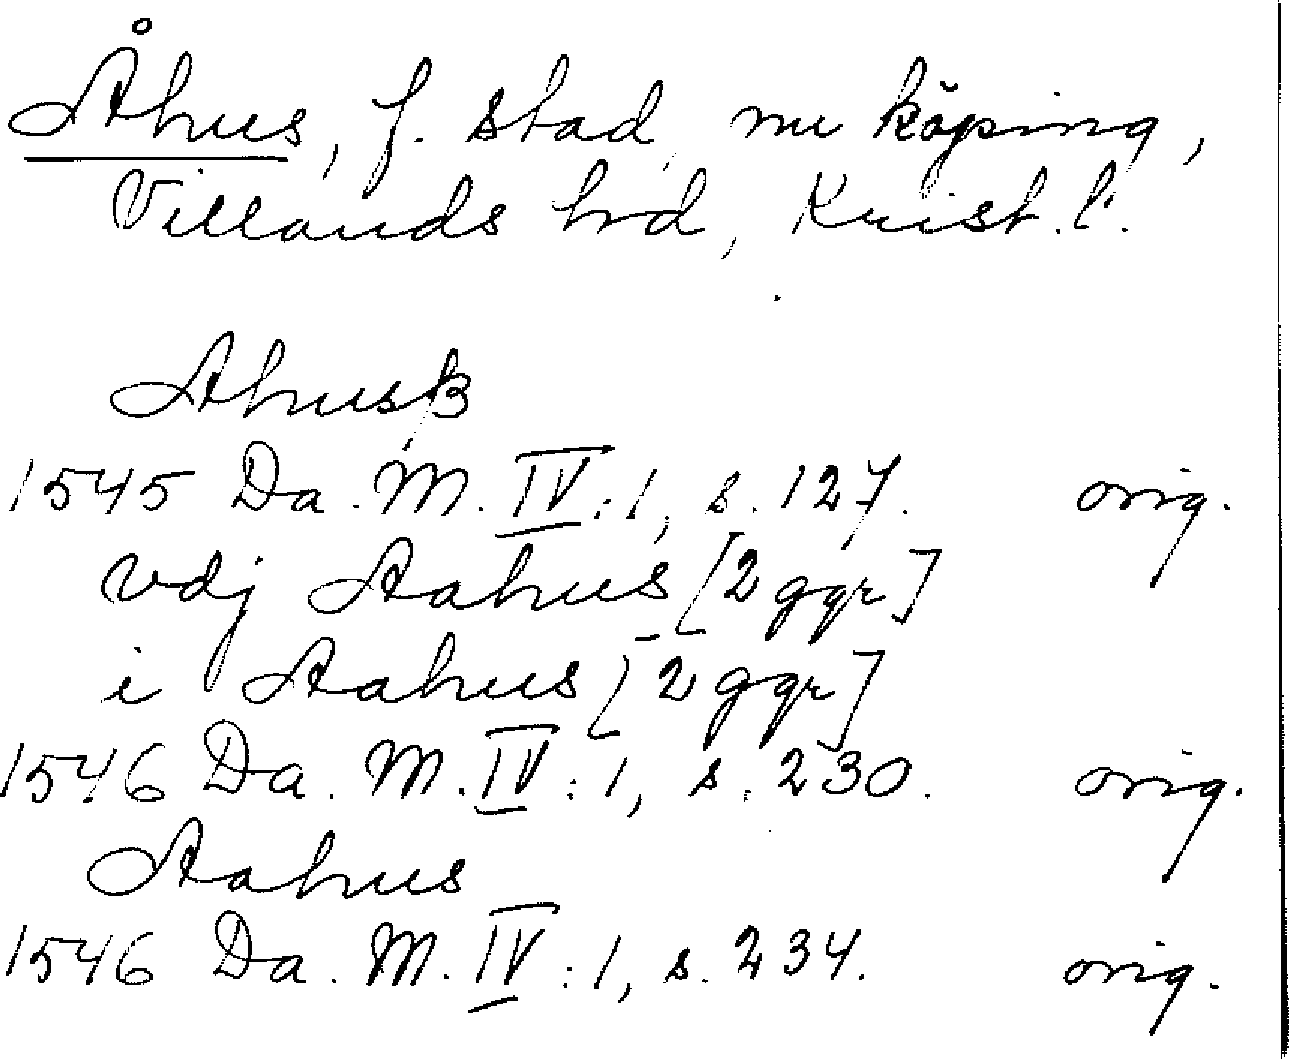 Åhus, f. stad, nu köping,
Villands hrd, Krist. l.
Ahusß
1545 Da. M. IV:1, s. 127. orig.
vdj Aahus [2 ggr]
i Aahus [2 ggr]
1546 Da. M. IV:1, s. 230. orig.
Aahus
1546 Da. M. IV:1, s. 234. orig.